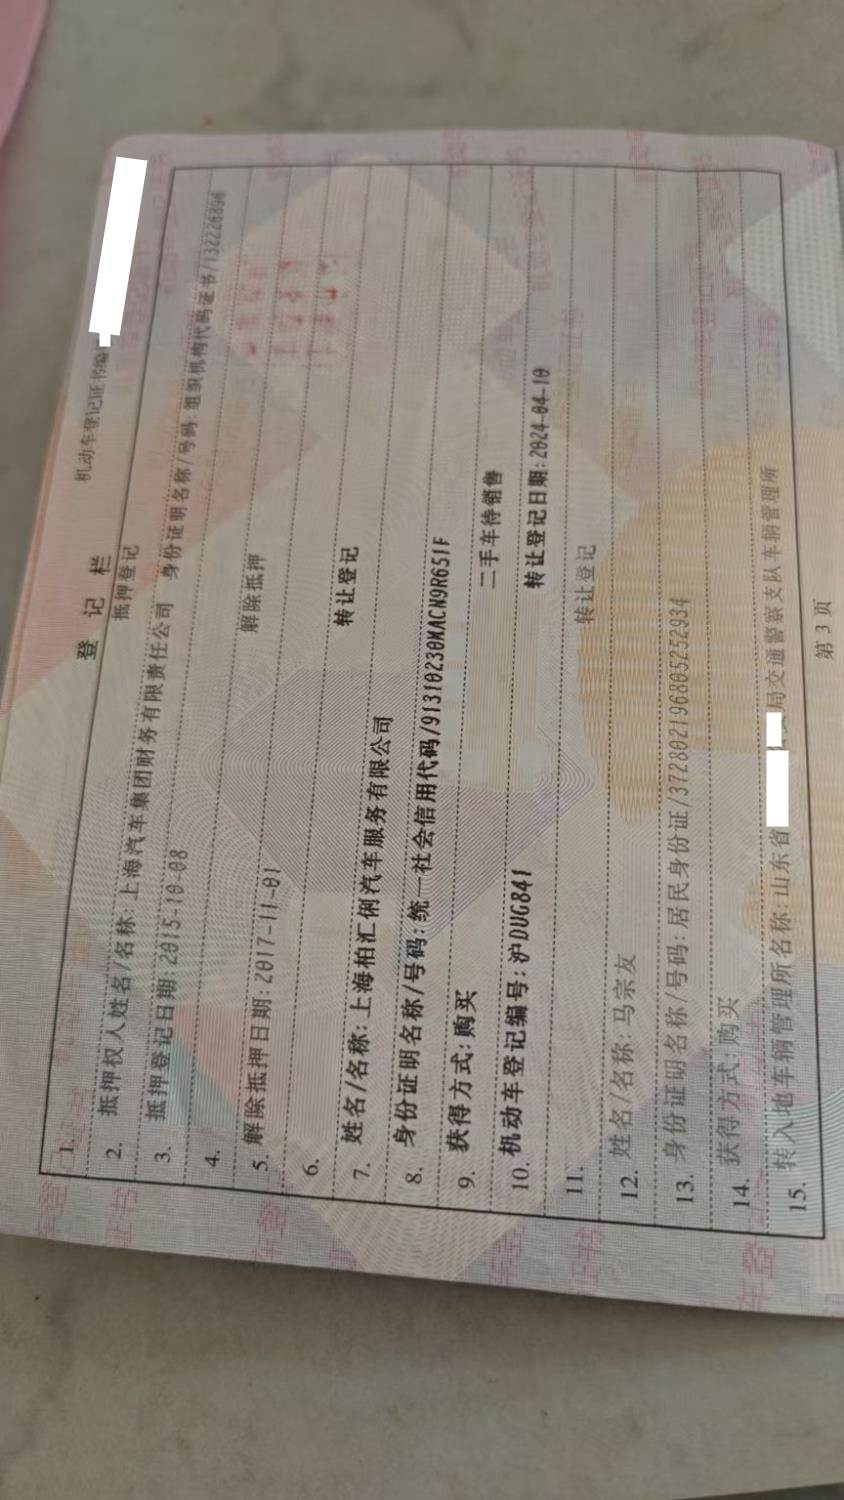 机动车登记证书编
登 记 栏
1. 抵押登记
2. 抵押权人姓名/名称: 上海汽车集团财务有限责任公司 身份证明名称/号码: 组织机构代码证书/132226896
3. 抵押登记日期: 2015-10-08
4. 解除抵押
5. 解除抵押日期: 2017-11-01
6. 转让登记
7. 姓名/名称: 上海柏汇俐汽车服务有限公司
8. 身份证明名称/号码: 统一社会信用代码/91310230MACN9R651F
9. 获得方式: 购买 二手车待销售
10. 机动车登记编号: 沪DUG841 转让登记日期: 2024-04-10
11. 转让登记
12. 姓名/名称: 马宗友
13. 身份证明名称/号码: 居民身份证/372802196805252934
14. 获得方式: 购买
15. 转入地车辆管理所名称: 山东省 局交通警察支队车辆管理所
第 3 页